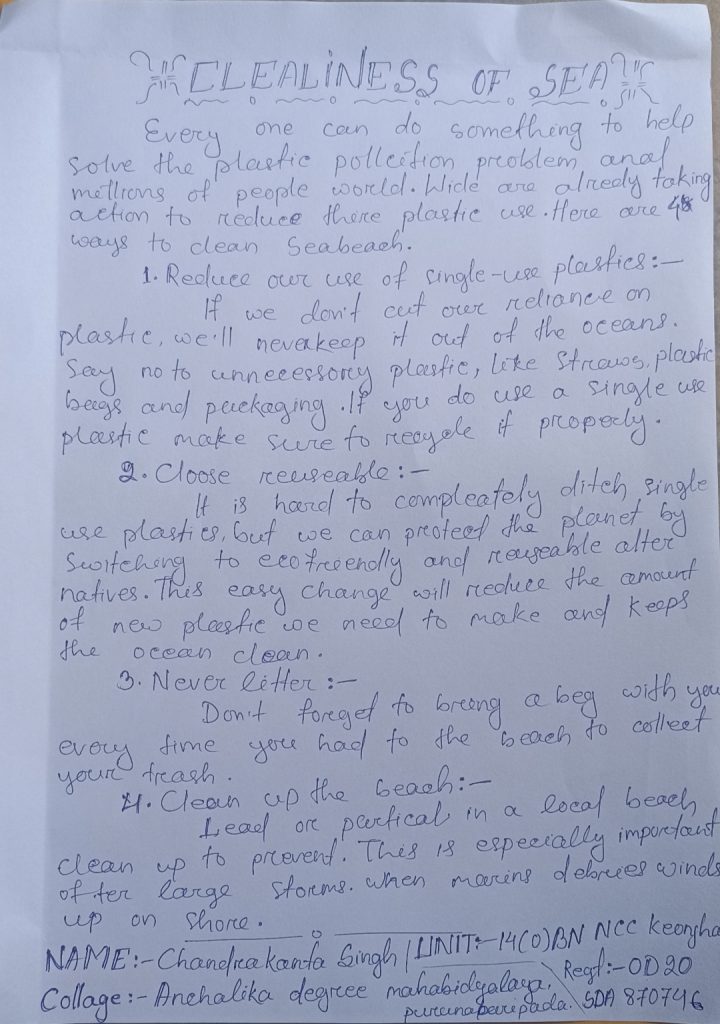 CLEALINESS OF SEA
Every one can do something to help
solve the plastic polleition problem and
mellions of people world. Wide are alredy taking
action to reduce there plastic use. Here are 4
ways to clean Seabeach.
1. Reduce our use of single-use plastics:-
If we don't cut our reliance on
plastic, we'll never keep it out of the oceans.
Say no to unnecessory plastic, like straws, plastic
bags and packaging. If you do use a single use
plastic make sure to recycle it properly.
2. Cloose reuseable:-
It is hard to compleately ditch single
use plastics, but we can protect the planet by
switching to ecofriendly and reuseable alter
natives. This easy change will reduce the amount
of new plastic we need to make and keeps
the ocean clean.
3. Never litter:-
Don't forget to bring a beg with you
every time you had to the beach to collect
your trash.
4. Clean up the beach:-
Lead or partical in a local beach
clean up to prevent. This is especially important
of ter large storms. when marins debrees winds
up on shore.
NAME:- Chandrakanta Singh | UNIT:- 14(O)BN NCC Keonjha
Collage:- Anchalika degree mahabidyalaya, Regt:- OD20
purunabaripada. SDA 870746